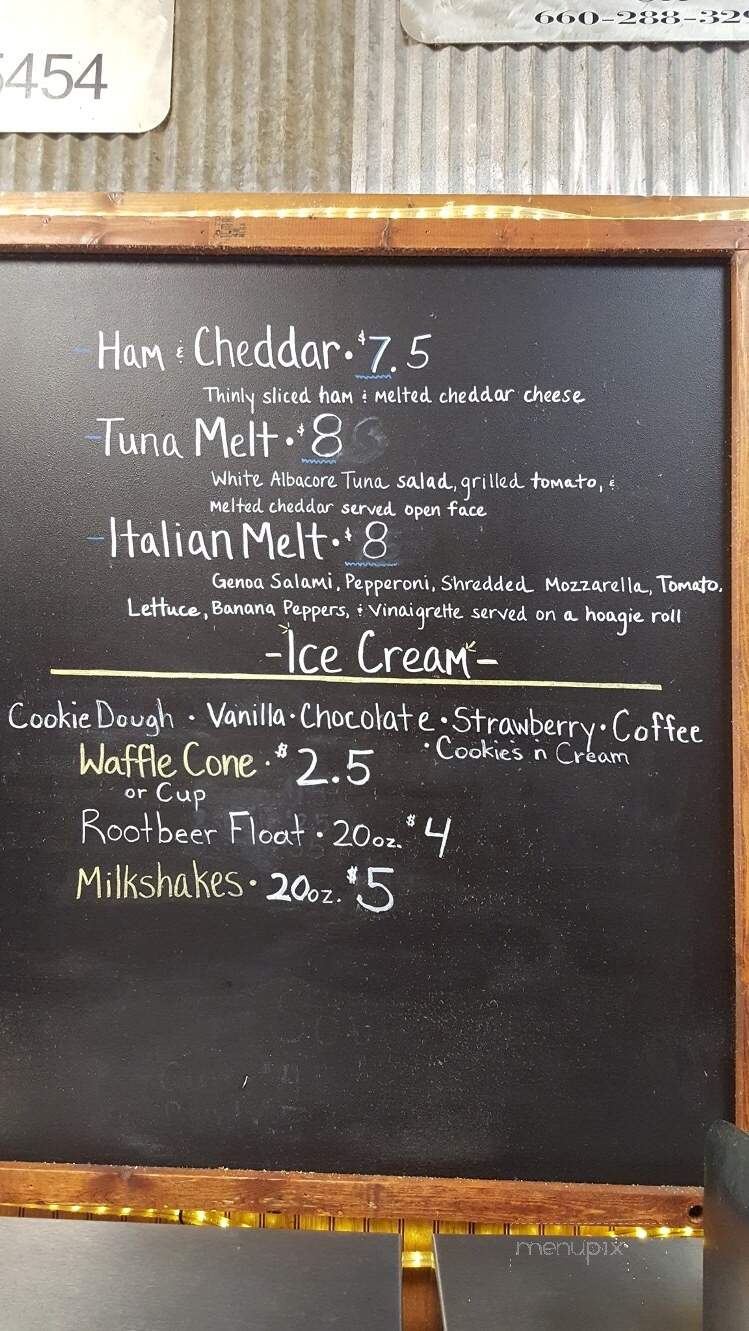 5454
660-288-329
-Ham & Cheddar · $7.5
Thinly sliced ham & melted cheddar cheese
-Tuna Melt · $8
White Albacore Tuna salad, grilled tomato, &
melted cheddar served open face
-Italian Melt · $8
Genoa Salami, Pepperoni, Shredded Mozzarella, Tomato,
Lettuce, Banana Peppers, & Vinaigrette served on a hoagie roll
-Ice Cream-
Cookie Dough · Vanilla · Chocolate · Strawberry · Coffee
· Cookies n Cream
Waffle Cone · $2.5
or Cup
Rootbeer Float · 20oz. $4
Milkshakes · 20oz. $5
menupix